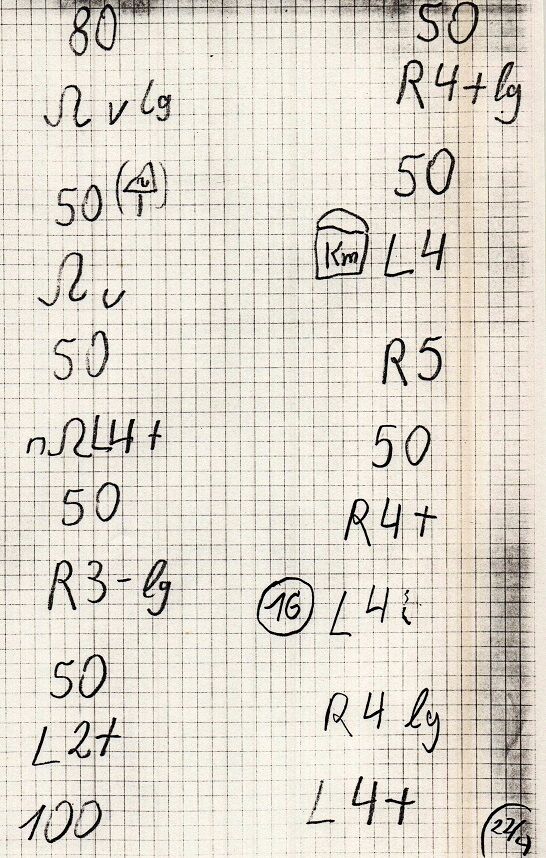 80
Ω v lg
50
Ω v
50
n Ω L4+
50
R3- lg
50
L2+
100
50
R4+ lg
50
Km L4
R5
50
R4+
16 L4
R4 lg
L4+